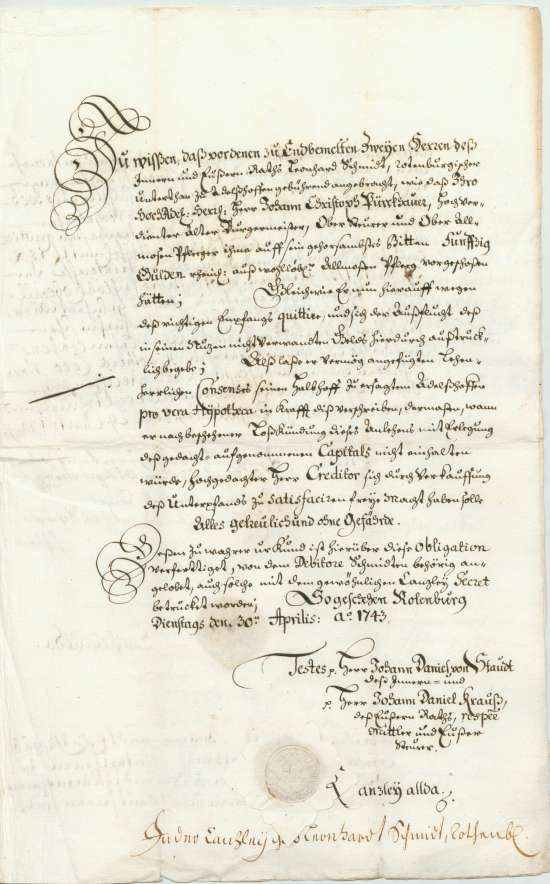 Zu wißen, daß vor denen zu Endbemelten Zweyen Herren deß
Innern und Eußern Raths Leonhard Schmidt, rotenburgischer
Unterthan zu Adelßhoffen gebührend angebracht, wie daß Ihro
HochEdel: Herrl: Herr Johann Christoph Pürckhauer, Hochver-
dienter Alter Burgermeister, Ober Steurer und Ober All-
mosen Pfleger ihme auff sein gehorsambstes Bitten Funffzig
Gulden rheinl: auß wohllöbl: Allmosen Pfleg vorgeschoßen
hätten; Gleichwie Er nun hierauff wegen
deß richtigen Empfangs quittire, und sich der Außflucht deß
in seinen Nuzen nicht verwandten Gelds hierdurch außtruck-
lich begebe; Alß laße er vermög angefügten Lehen-
herrlichen Consenses seinen Halbhoff zu ersagtem Adelßhoffen
pro vera Hypotheca in Krafft diß verschreiben, dermaßen, wann
er nach beschehener Loßkündung dieses Anlehens mit Erlegung
deß gedacht-aufgenommenen Capitals nicht einhalten
würde, Hochgedachter Herr Creditor sich durch Verkauffung
deß Unterpfands zu satisfaciren freye Macht haben solle
Alles getreulich und ohne Gefährde.
Deßen zu wahrer Urkund ist hierüber diese Obligation
verfertiget, von dem Debitore Schmidten behörig an-
gelobet, auch solche mit dem gewöhnlichen Canzley Secret
betrucket worden; So geschehen Rotenburg
Dienstags den 30.ten Aprilis: Ao. 1743.
Testes p. Herr Johann Daniel von Staudt
deß Innern- und
p. Herr Johann Daniel Krauß,
deß Eußern Raths, respée
Mittler und Eußer
Steurer.
Canzley allda.
Canzley Leonhardt Schmidt